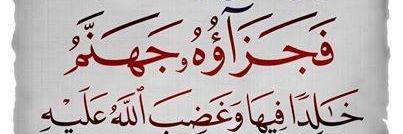 فَجَزَآؤُهُۥ جَهَنَّمُ
خَٰلِدًا فِيهَا وَغَضِبَ ٱللَّهُ عَلَيْهِ